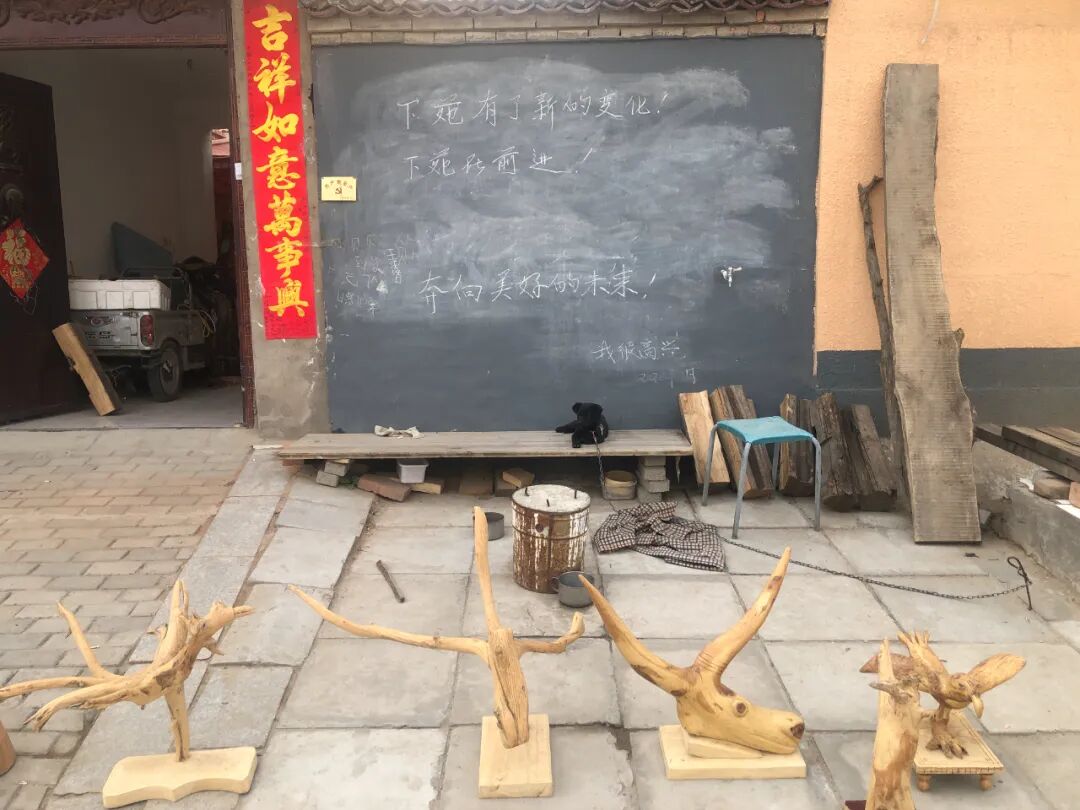 吉祥如意萬事興
下苑有了新的变化!
下苑在前进!
奔向美好的未来!
我很高兴
福